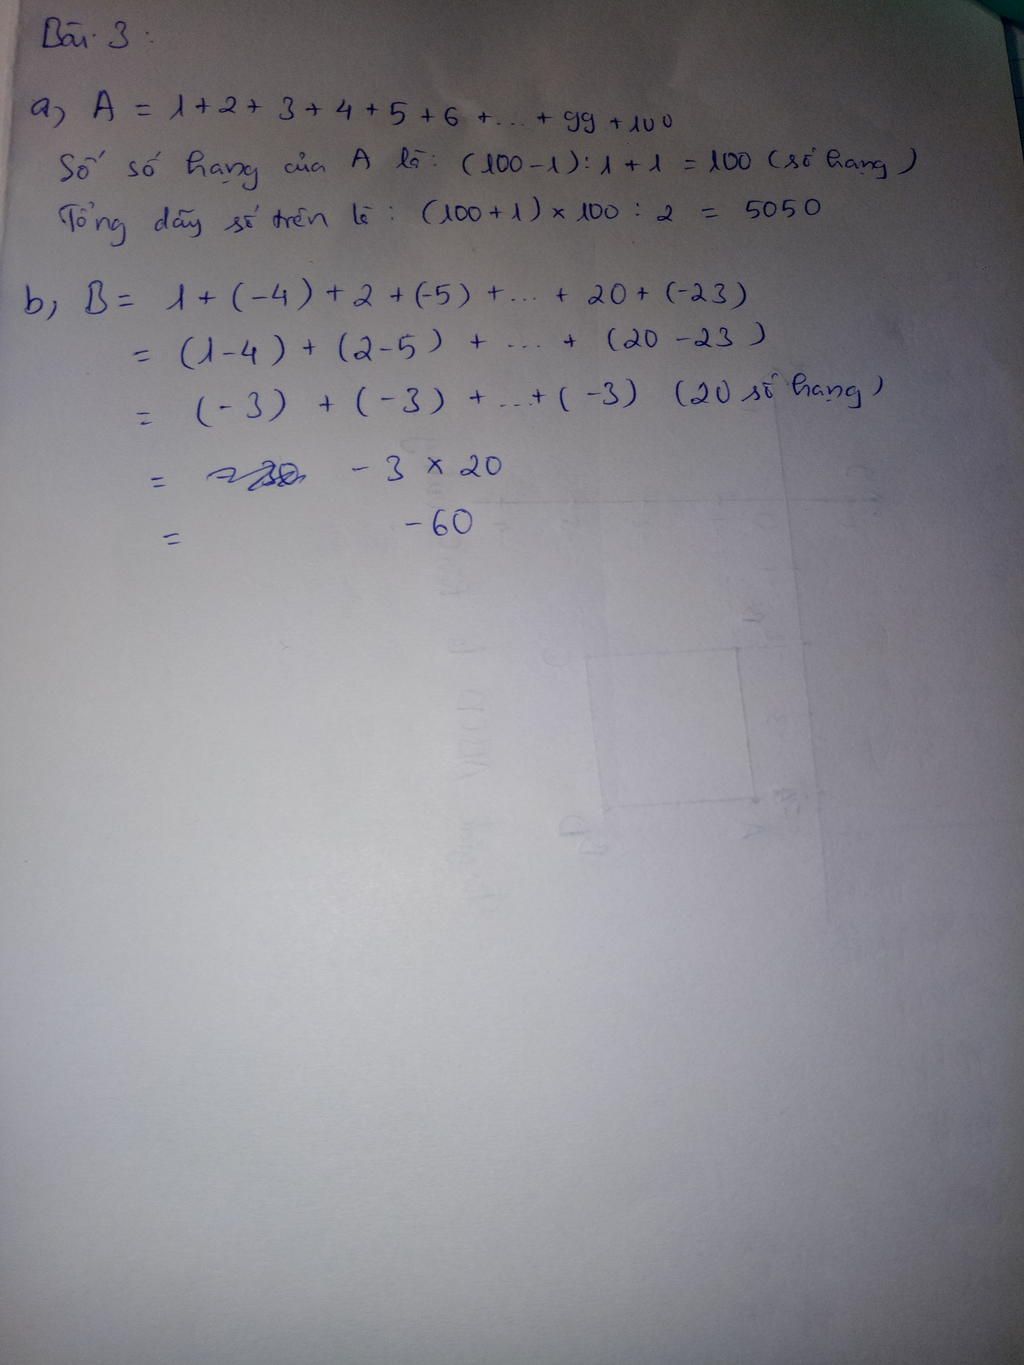 Bài 3:
a, A = 1 + 2 + 3 + 4 + 5 + 6 + ... + 99 + 100
Số số hạng của A là: (100 - 1) : 1 + 1 = 100 (số hạng)
Tổng dãy số trên là: (100 + 1) × 100 : 2 = 5050
b, B = 1 + (-4) + 2 + (-5) + ... + 20 + (-23)
= (1 - 4) + (2 - 5) + ... + (20 - 23)
= (-3) + (-3) + ... + (-3) (20 số hạng)
= - 3 × 20
= - 60